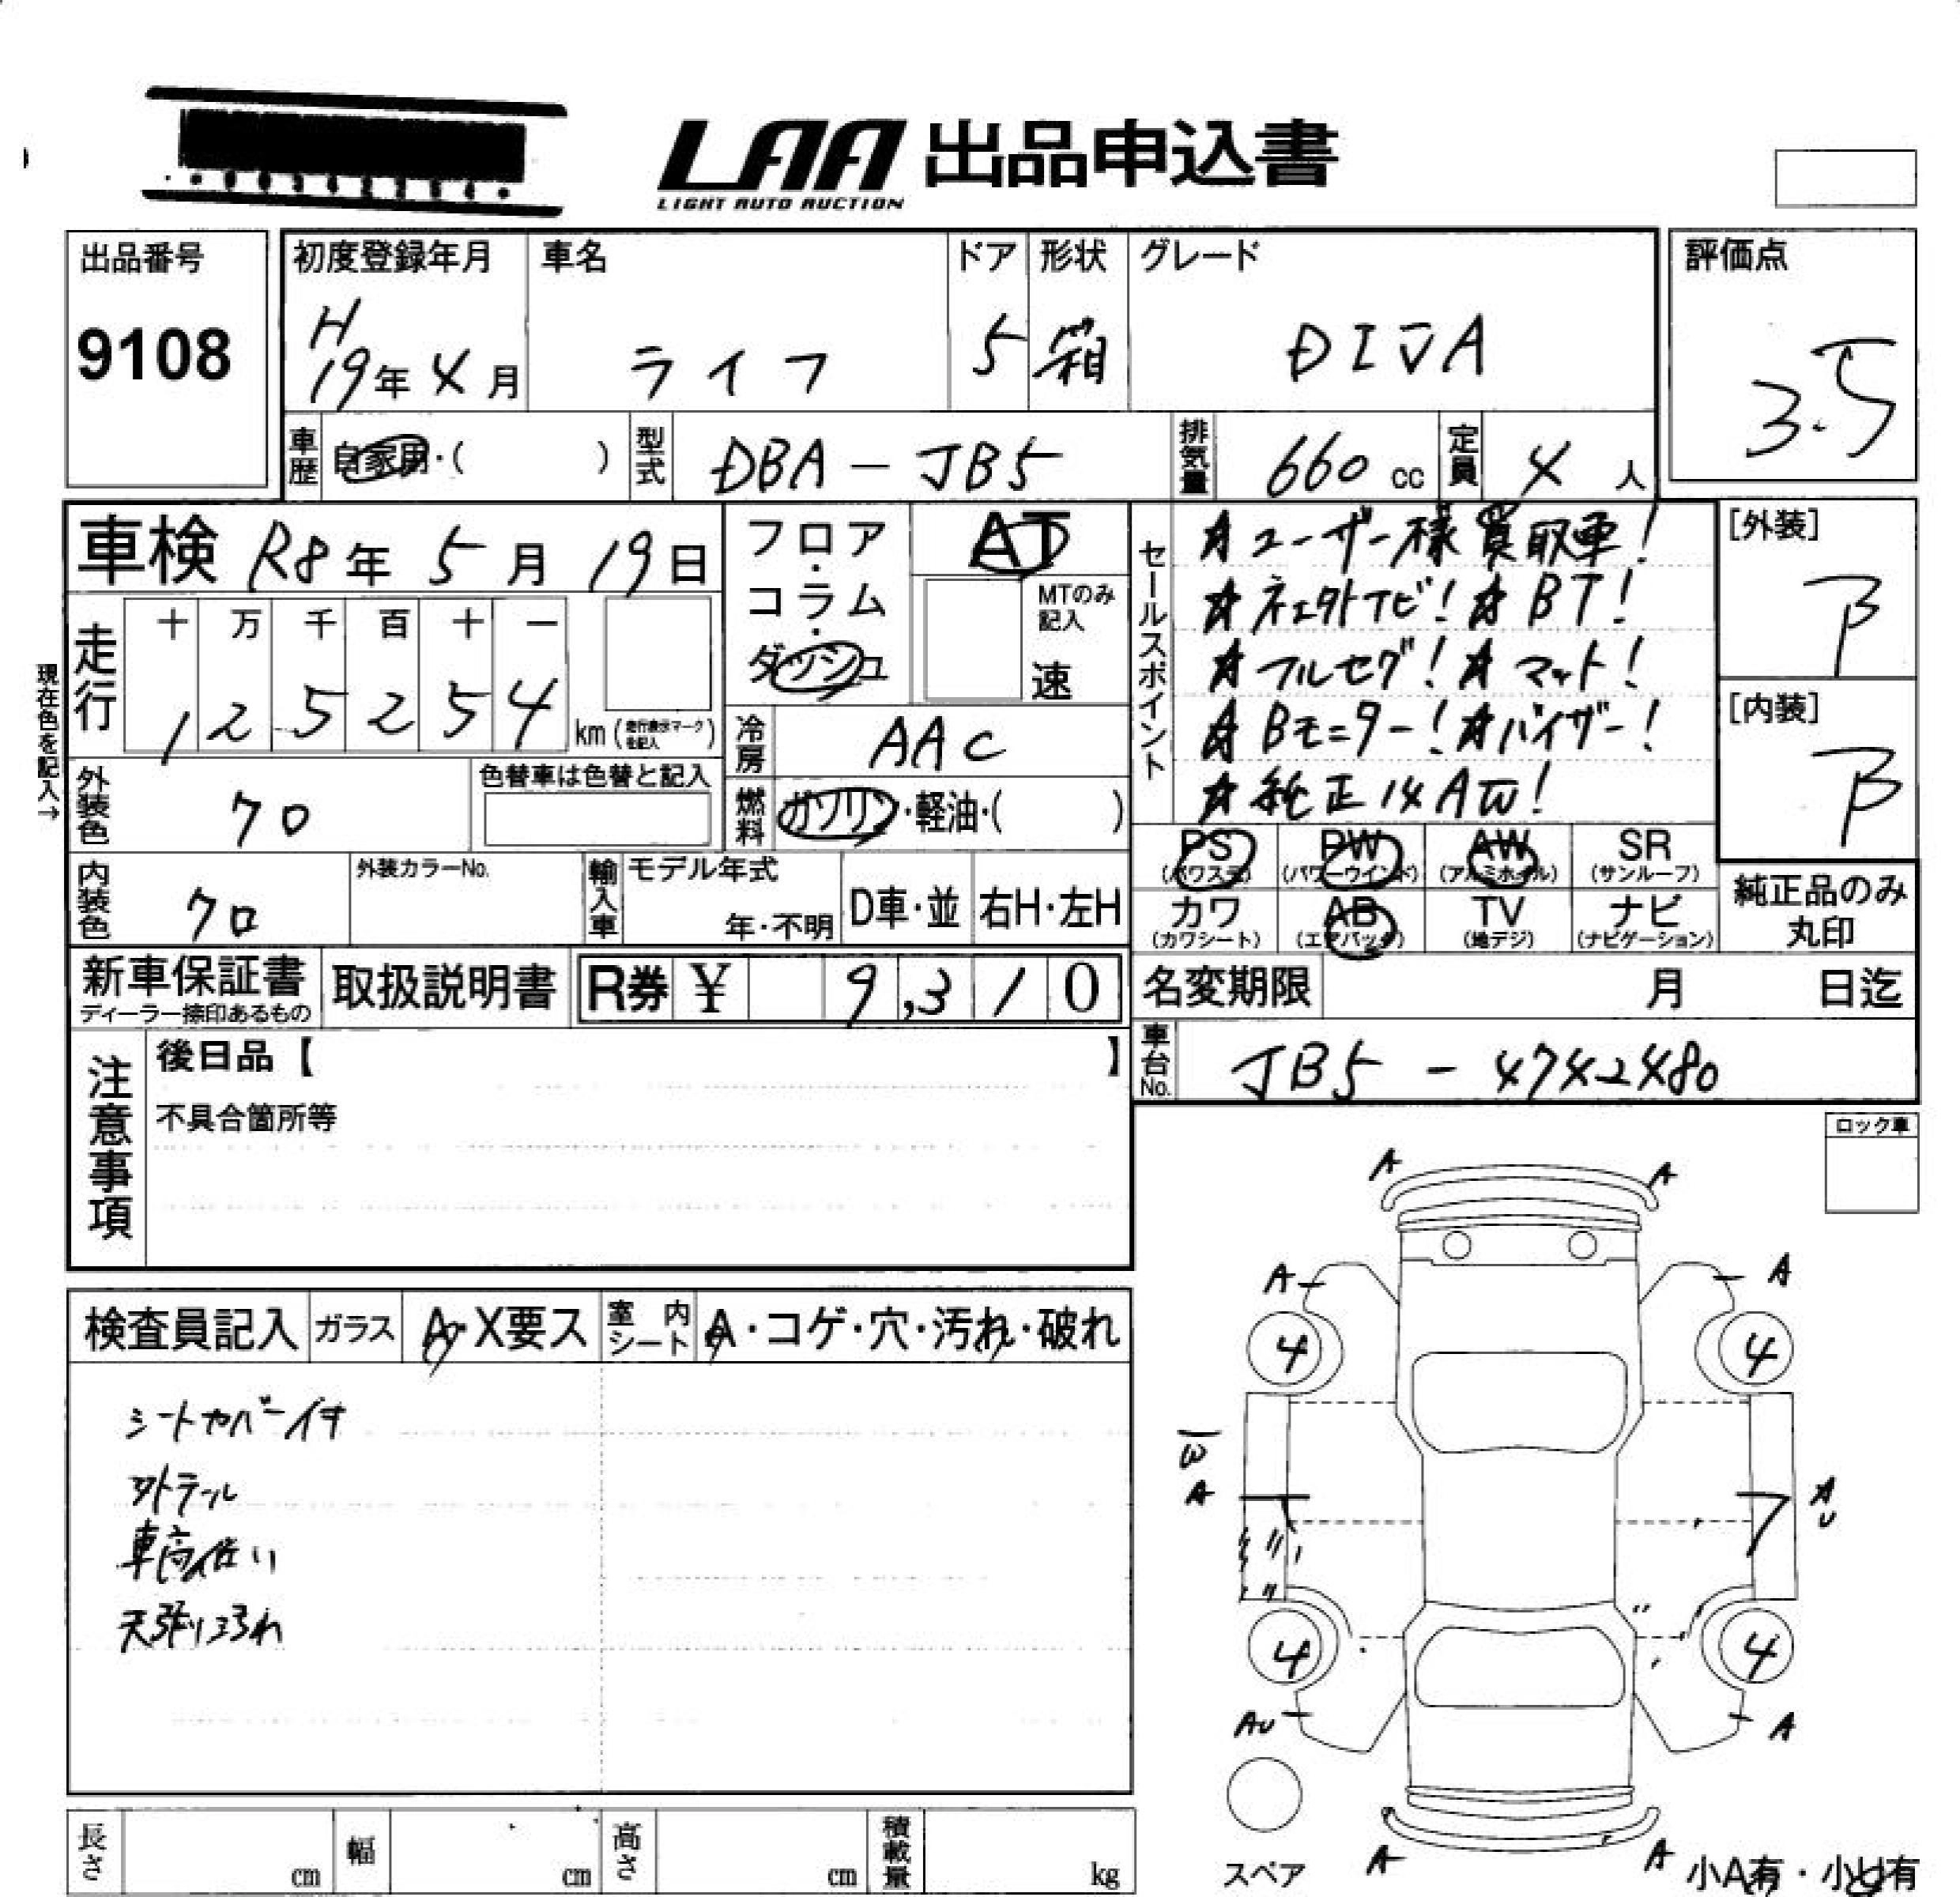 LAA 出品申込書
LIGHT AUTO AUCTION
出品番号
9108
初度登録年月
H
19年4月
車名
ライフ
ドア
5
形状
箱
グレード
DIVA
評価点
3.5
車歴
自家用・( )
型式
DBA-JB5
排気量
660 cc
定員
4 人
車検 R8年 5月 19日
フロア・コラム・ダッシュ
AT
MTのみ記入
速
セールスポイント
☆ユーザー様買取車!
☆社外ナビ! ☆BT!
☆フルセグ! ☆マット!
☆Bモニター! ☆バイザー!
☆純正14AW!
[外装]
B
[内装]
B
現在色を記入→
走行
十 万 千 百 十 一
1 2 5 2 5 4
km (走行表示マークを記入)
冷房
AAC
外装色
クロ
色替車は色替と記入
燃料
ガソリン・軽油・( )
PS (パワステ)
PW (パワーウインド)
AW (アルミホイル)
SR (サンルーフ)
内装色
クロ
外装カラーNo.
輸入車
モデル年式
年・不明
D車・並
右H・左H
カワ (カワシート)
AB (エアバック)
TV (地デジ)
ナビ (ナビゲーション)
純正品のみ丸印
新車保証書
ディーラー捺印あるもの
取扱説明書
R券 ¥ 9,310
名変期限 月 日迄
注意事項
後日品【 】
不具合箇所等
車台No.
JB5-4742480
ロック車
検査員記入
ガラス
A・X要ス
室内シート
A・コゲ・穴・汚れ・破れ
シートカバー付
外テール
車高低い
天張り汚れ
A A
A A
4 4
W
A
A
U
4 4
AU A
スペア
A A
小A有・小U有
長さ cm
幅 cm
高さ cm
積載量 kg